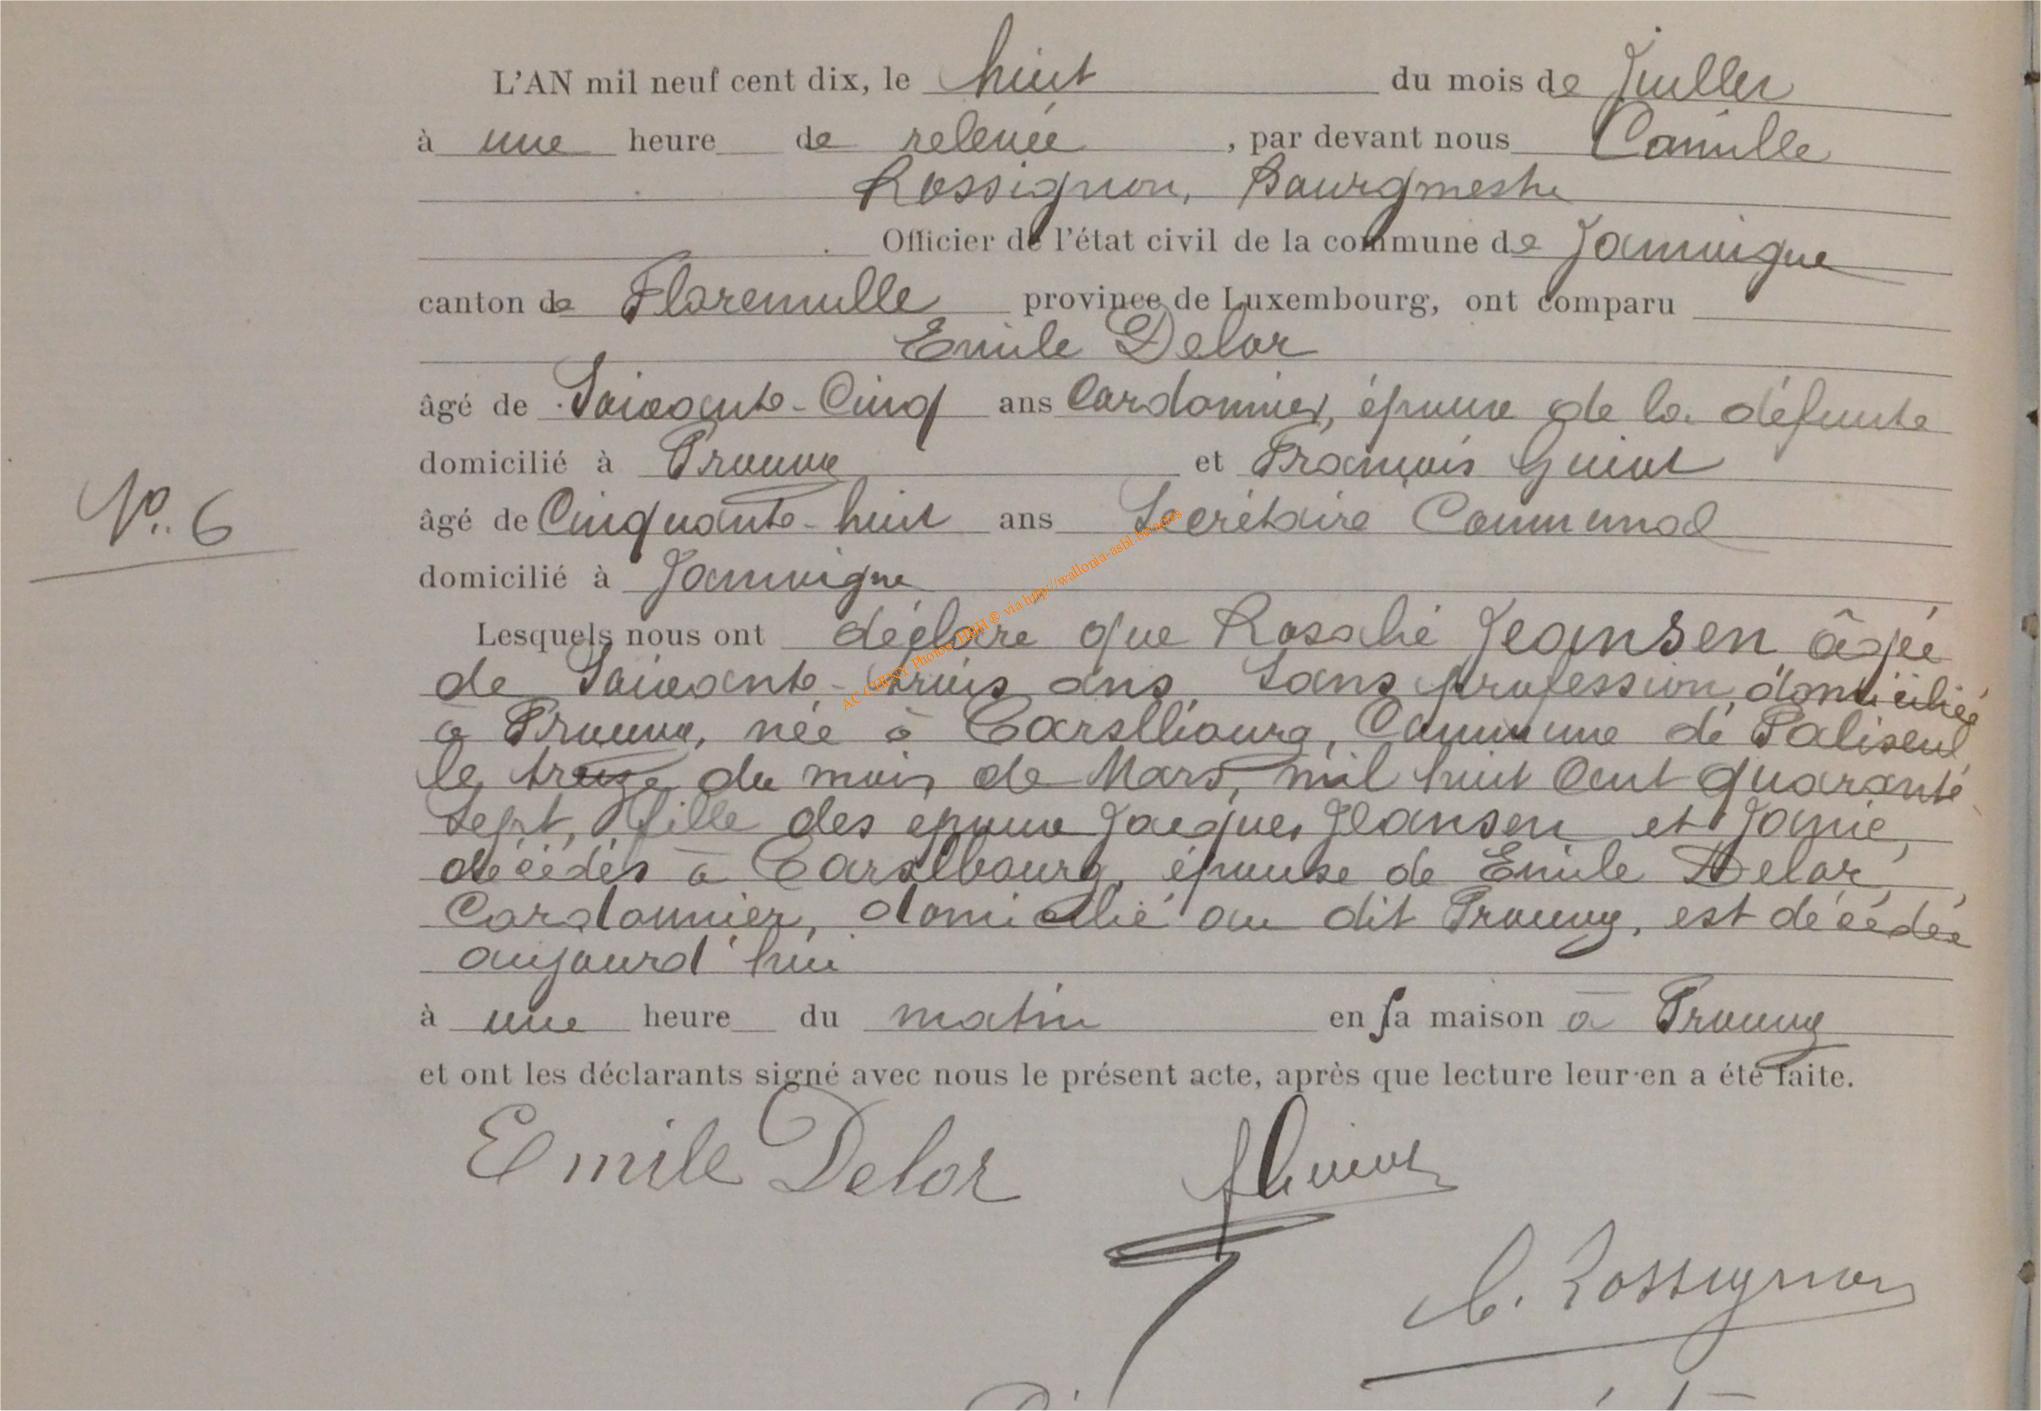 L'AN mil neuf cent dix, le huit du mois de Juillet
à une heure de relevée, par devant nous Camille
Rossignon, Bourgmestre
Officier de l'état civil de la commune de Jamoigne
canton de Florenville province de Luxembourg, ont comparu
Emile Delor
âgé de Soixante-Cinq ans Cordonnier, époux de la défunte
domicilié à Prouvy et François Guiot
âgé de Cinquante-huit ans Secrétaire Communal
domicilié à Jamoigne
N° 6
Lesquels nous ont déclaré que Rosalie Jeansen âgée
de Soixante-trois ans, Sans profession, domiciliée
à Prouvy, née à Carlsbourg, Commune de Paliseul,
le treize du mois de Mars, mil huit Cent quarante
Sept, fille des époux Jacques Jeansen et Jamie,
décédés à Carlsbourg, épouse de Emile Delor,
Cordonnier, domicilié au dit Prouvy, est décédée
aujourd'hui
à une heure du matin en sa maison à Prouvy
et ont les déclarants signé avec nous le présent acte, après que lecture leur en a été faite.
Emile Delor
f Guiot
C. Rossignon